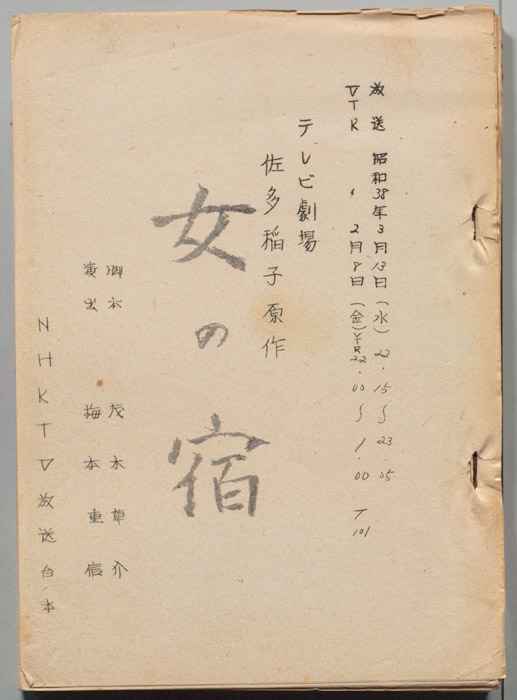 放送 昭和38年3月13日（水）22.15〜23.05
VTR 〃 2月8日（金）VTR22.00〜1.00 T101
テレビ劇場
佐多稲子原作
女の宿
脚本 茂木草介
演出 梅本重信
NHKTV放送台本